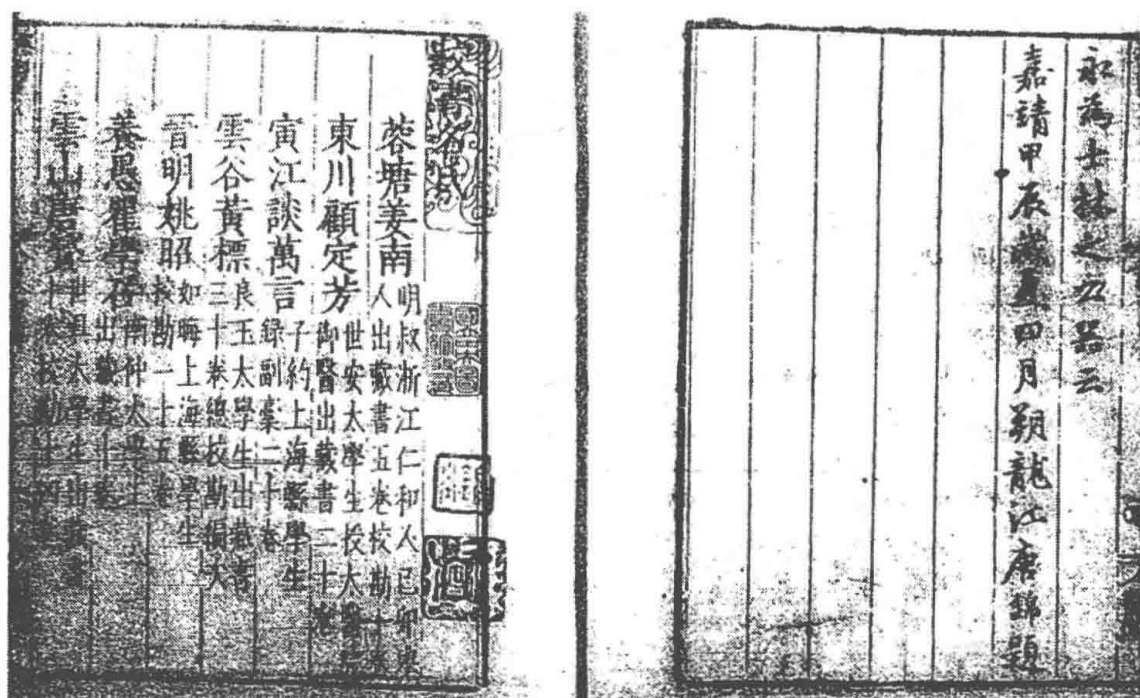 永為士林之公器云
嘉請甲辰歲夏四月朔龍江唐錦題
校書名氏
蓉塘姜南 明叔浙江仁和人己卯舉
人出藏書五卷校勘十卷
東川顧定芳 世安太學生授太醫院
御醫出藏書二十卷
寅江談萬言 子約上海縣學生
錄副稾二十卷
雲谷黃標 良玉太學生出藏書
三十卷總校勘編次
晉明姚昭 如晦上海縣學生
校勘一十五卷
養愚瞿學召 南仲太學生
出藏書十卷
雲山唐 太學生出藏書
十卷校勘十四卷